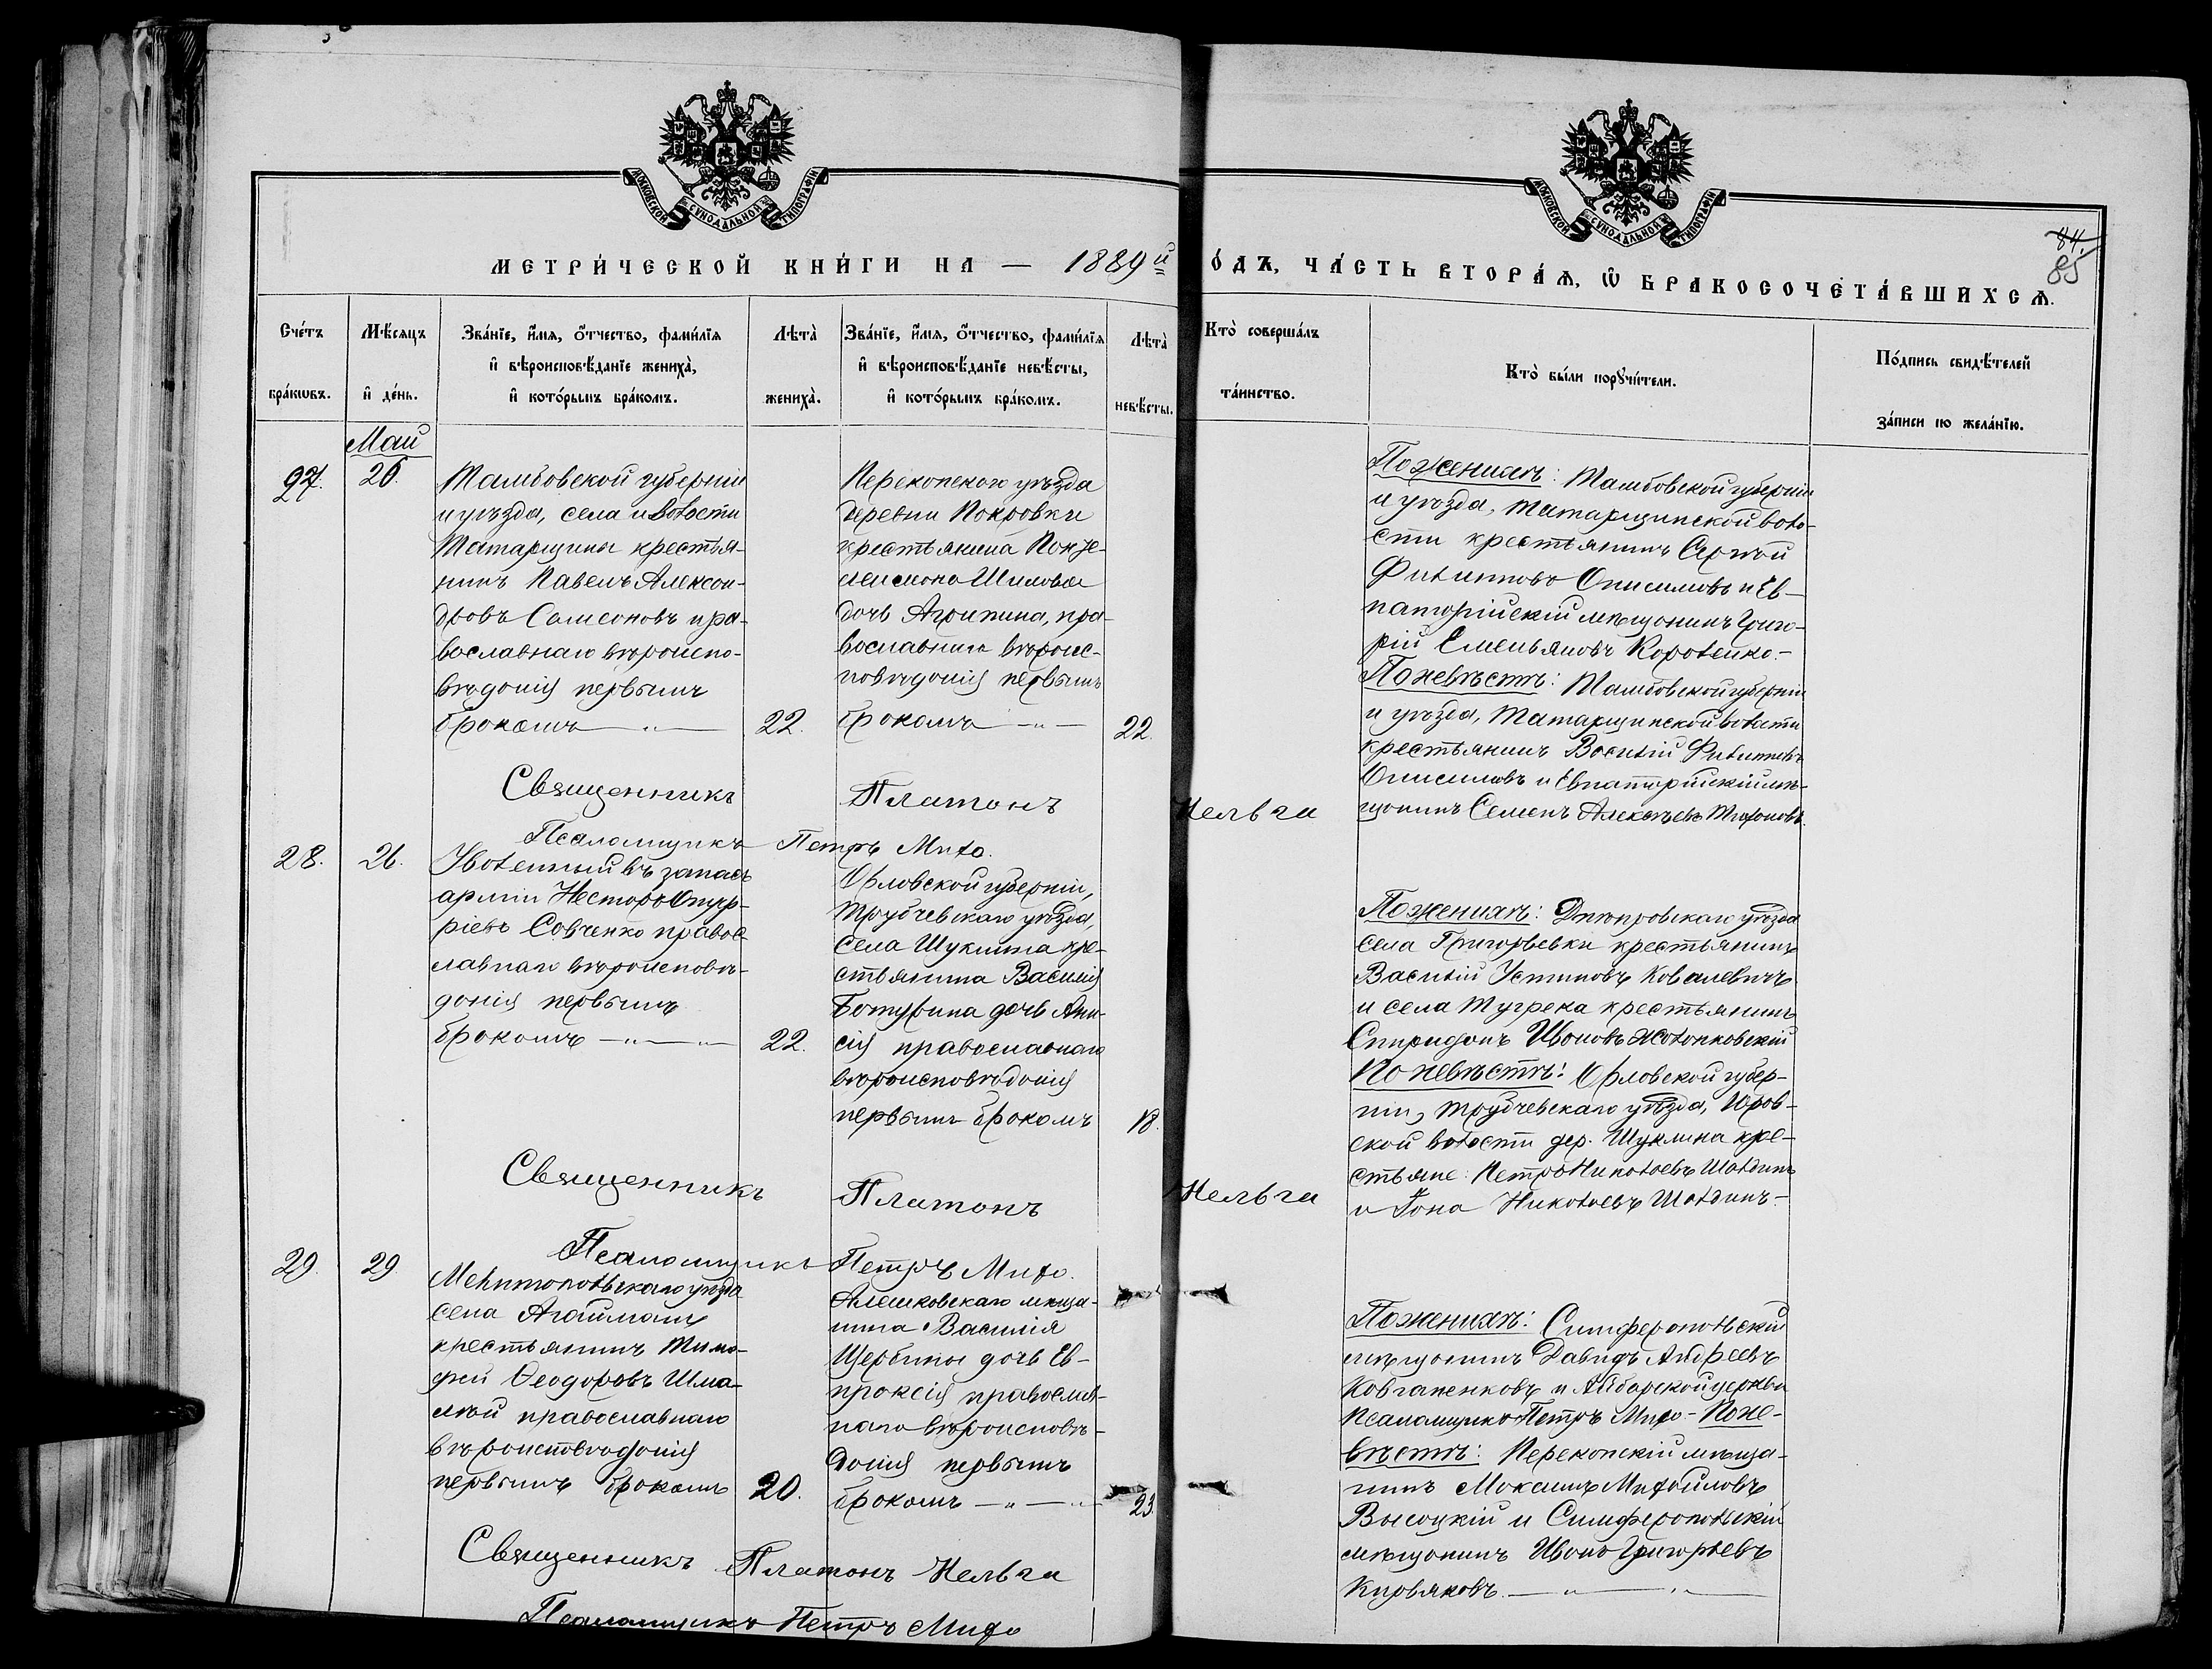 МОСКОВСКОЙ СѴНОДАЛЬНОЙ ТИПОГРАФІИ
МОСКОВСКОЙ СѴНОДАЛЬНОЙ ТИПОГРАФІИ
84.
85
МЕТРИ́ЧЕСКОЙ КНИ́ГИ НА — 1889й
О́ДЪ, ЧА́СТЬ ВТОРА́Ѧ, Ѡ҆ БРАКОСОЧЕТА́ВШИХСѦ.
Сче́тъ
бра́кѡвъ.
Мѣ́сѧцъ
и҆ де́нь.
Зва́нїе, и҆́мѧ, ѻ҆́тчество, фами́лїѧ
и҆ вѣроисповѣ́данїе жениха̀,
и҆ кото́рымъ бра́комъ.
Лѣта̀
жениха̀.
Зва́нїе, и҆́мѧ, ѻ҆́тчество, фами́лїѧ
и҆ вѣроисповѣ́данїе невѣ́сты,
и҆ кото́рымъ бра́комъ.
Лѣта̀
невѣ́сты.
Кто̀ соверша́лъ
та́инство.
Кто̀ бы́ли порꙋчи́тели.
По́дпись свидѣ́телей
за́писи по жела́нїю.
Май
27.
26.
Тамбовской губерніи
и уѣзда, села и волости
Татарщины крестья-
нинъ Павелъ Алексан-
дровъ Самсоновъ пра-
вославнаго вѣроиспо-
вѣданія первымъ
бракомъ — " —
22.
Перекопскаго уѣзда
деревни Покровки
крестьянина
Шилова
дочь Агрипина, пра-
вославнаго вѣроис-
повѣданія первымъ
бракомъ — " —
22.
По женихѣ: Тамбовской губерніи
и уѣзда, Татарщинской воло-
сти крестьянинъ Сергѣй
Филиповъ Онисимовъ и Ев-
паторійскій мѣщанинъ Григо-
рій Емельяновъ Коротенко.—
По невѣстѣ: Тамбовской губерніи
и уѣзда, Татарщинской волости
крестьянинъ Василій Филиповъ
Онисимовъ и Евпаторійскій мѣ-
щанинъ Семенъ Алексѣевъ
Священникъ Платонъ Нельга
Псаломщикъ Петръ Михо.
28.
26.
Уволенный въ запасъ
арміи Несторъ Онуф-
ріевъ Савченко правос-
лавнаго вѣроисповѣ-
данія первымъ
бракомъ — " — " —
22.
Орловской губерніи,
Трубчевскаго уѣзда,
села Шуклина кре-
стьянина Василія
Батурина дочь Ани-
сія православнаго
вѣроисповѣданія
первымъ бракомъ
18.
По женихѣ: Днѣпровскаго уѣзда
села Григорьевки крестьянинъ
Василій Устиновъ Ковалевичъ
и села Тугрека крестьянинъ
Спиридонъ Ивановъ
По невѣстѣ: Орловской губер-
ніи, Трубчевскаго уѣзда, Юров-
ской волости дер. Шуклина кре-
стьяне: Петръ Николаевъ Шалдинъ
и Іона Николаевъ Шалдинъ.—
Священникъ Платонъ Нельга
Псаломщикъ Петръ Михо.
29.
29.
Мелитопольскаго уѣзда
села Агаймана
крестьянинъ Тимо-
фей Ѳеодоровъ Шма-
лѣй православнаго
вѣроисповѣданія
первымъ бракомъ
20.
Алешковскаго мѣща-
нина Василія
Щербины дочь Ев-
праксія православ-
наго вѣроисповѣ-
данія первымъ
бракомъ — " — " —
23.
По женихѣ: Симферопольскій
мѣщанинъ Давидъ Андреевъ
Ковганенковъ и Айбарской церкви
псаломщикъ Петръ Михо.— По не-
вѣстѣ: Перекопскій мѣща-
нинъ Максимъ Михайловъ
Высоцкій и Симферопольскій
мѣщанинъ Иванъ Григорьевъ
Кирьяковъ. — " — " —
Священникъ Платонъ Нельга
Псаломщикъ Петръ Михо